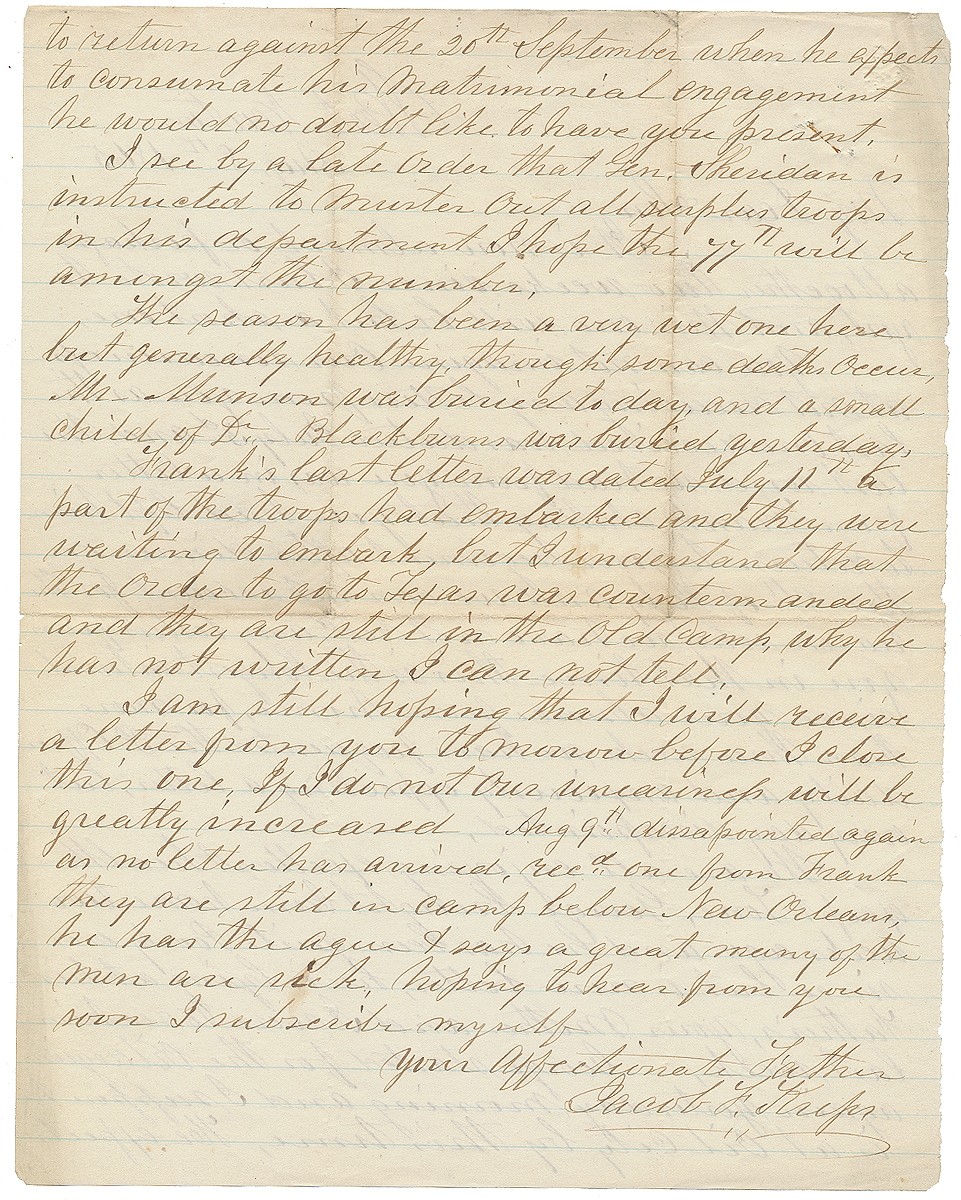 to return against the 20th September when he expects
to consumate his matrimonial engagement
he would no doubt like to have you present.
I see by a late Order that Gen. Sheridan is
instructed to Muster Out all surplus troops
in his department I hope the 77th will be
amongst the number.
The season has been a very wet one here
but generally healthy though some deaths Occur,
Mr. Munson was buried to day, and a small
child of Dr. Blackburns was buried yesterday,
Frank's last letter was dated July 11th a
part of the troops had embarked and they were
waiting to embark, but I understand that
the Order to go to Texas was countermanded
and they are still in the Old Camp, why he
has not written I can not tell.
I am still hoping that I will receive
a letter from you to morrow before I close
this one, If I do not Our uneasiness will be
greatly increased Aug 9th dissapointed again
as no letter has arrived, recd. one from Frank
they are still in camp below New Orleans,
he has the ague & says a great many of the
men are sick, hoping to hear from you
soon I subscribe myself
your Affectionate Father
Jacob F. Kreps